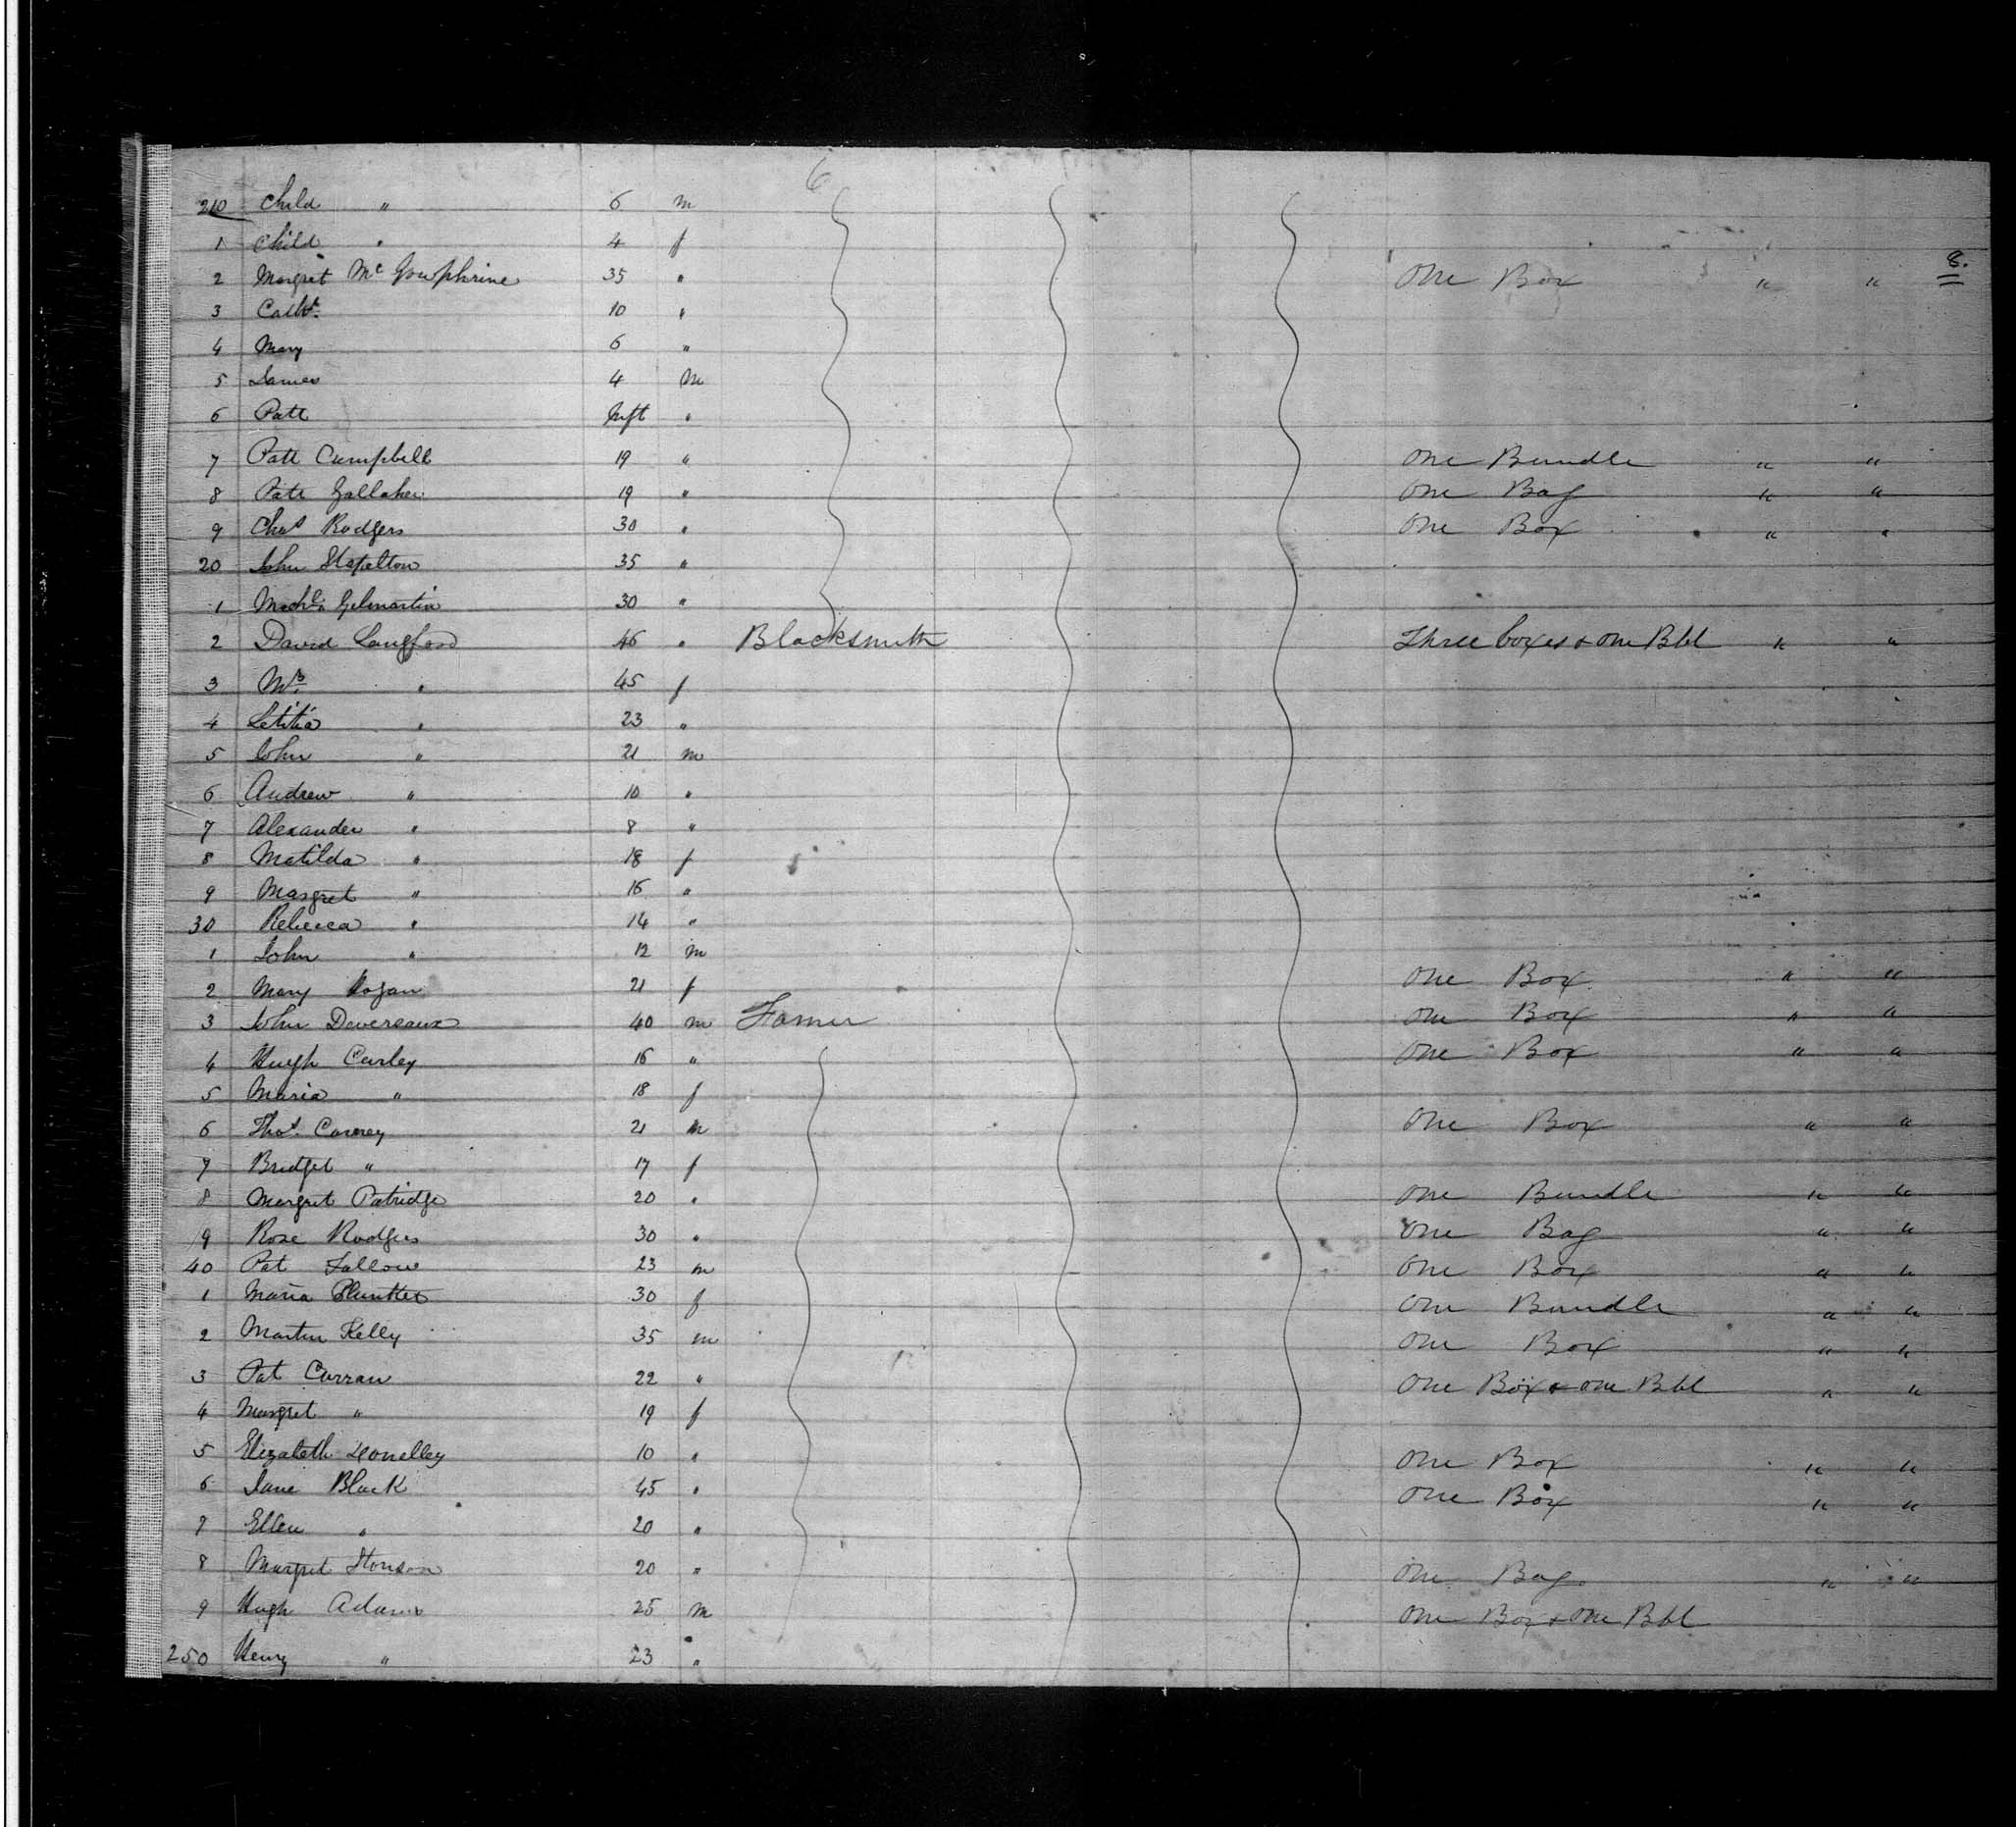 6
210 Child " 6 m
1 Child " 4 f
8.
2 Margret Mc 35 " One Box " "
3 Cath. 10 "
4 Mary 6 "
5 James 4 m
6 Patt Inft "
7 Patt Campbell 19 " One Bundle " "
8 Patt Gallaher 19 " One Bag " "
9 Chas Rodgers 30 " One Box " "
20 John Stapelton 35 "
1 Michl. Gilmartin 30 "
2 David Langford 46 " Blacksmith Three boxes & one Bbl " "
3 Mrs. " 45 f
4 Letitia " 23 "
5 John " 21 m
6 Andrew " 10 "
7 Alexander " 8 "
8 Matilda " 18 f
9 Margret " 16 "
30 Rebecca " 14 "
1 John " 12 m
2 Mary Hogan 21 f One Box " "
3 John Devereaux 40 m Farmer One Box " "
4 Hugh Curley 16 " One Box " "
5 Maria " 18 f
6 Thos. 21 m One Box " "
7 Bridget " 17 f
8 Margret Patridge 20 " One Bundle " "
9 Rose Rodgers 30 " One Bag " "
40 Pat Fallow 23 m One Box " "
1 Maria 30 f One Bundle " "
2 Martin Kelly 35 m One Box " "
3 Pat Curran 22 " One Box & one Bbl " "
4 Margret " 19 f
5 Elizabeth Donelley 10 " One Box " "
6 Jane Black 45 " One Box " "
7 Ellen " 20 "
8 Margret 20 " One Bag. " "
9 Hugh Adams 25 m One Box & One Bbl
250 Henry " 23 "